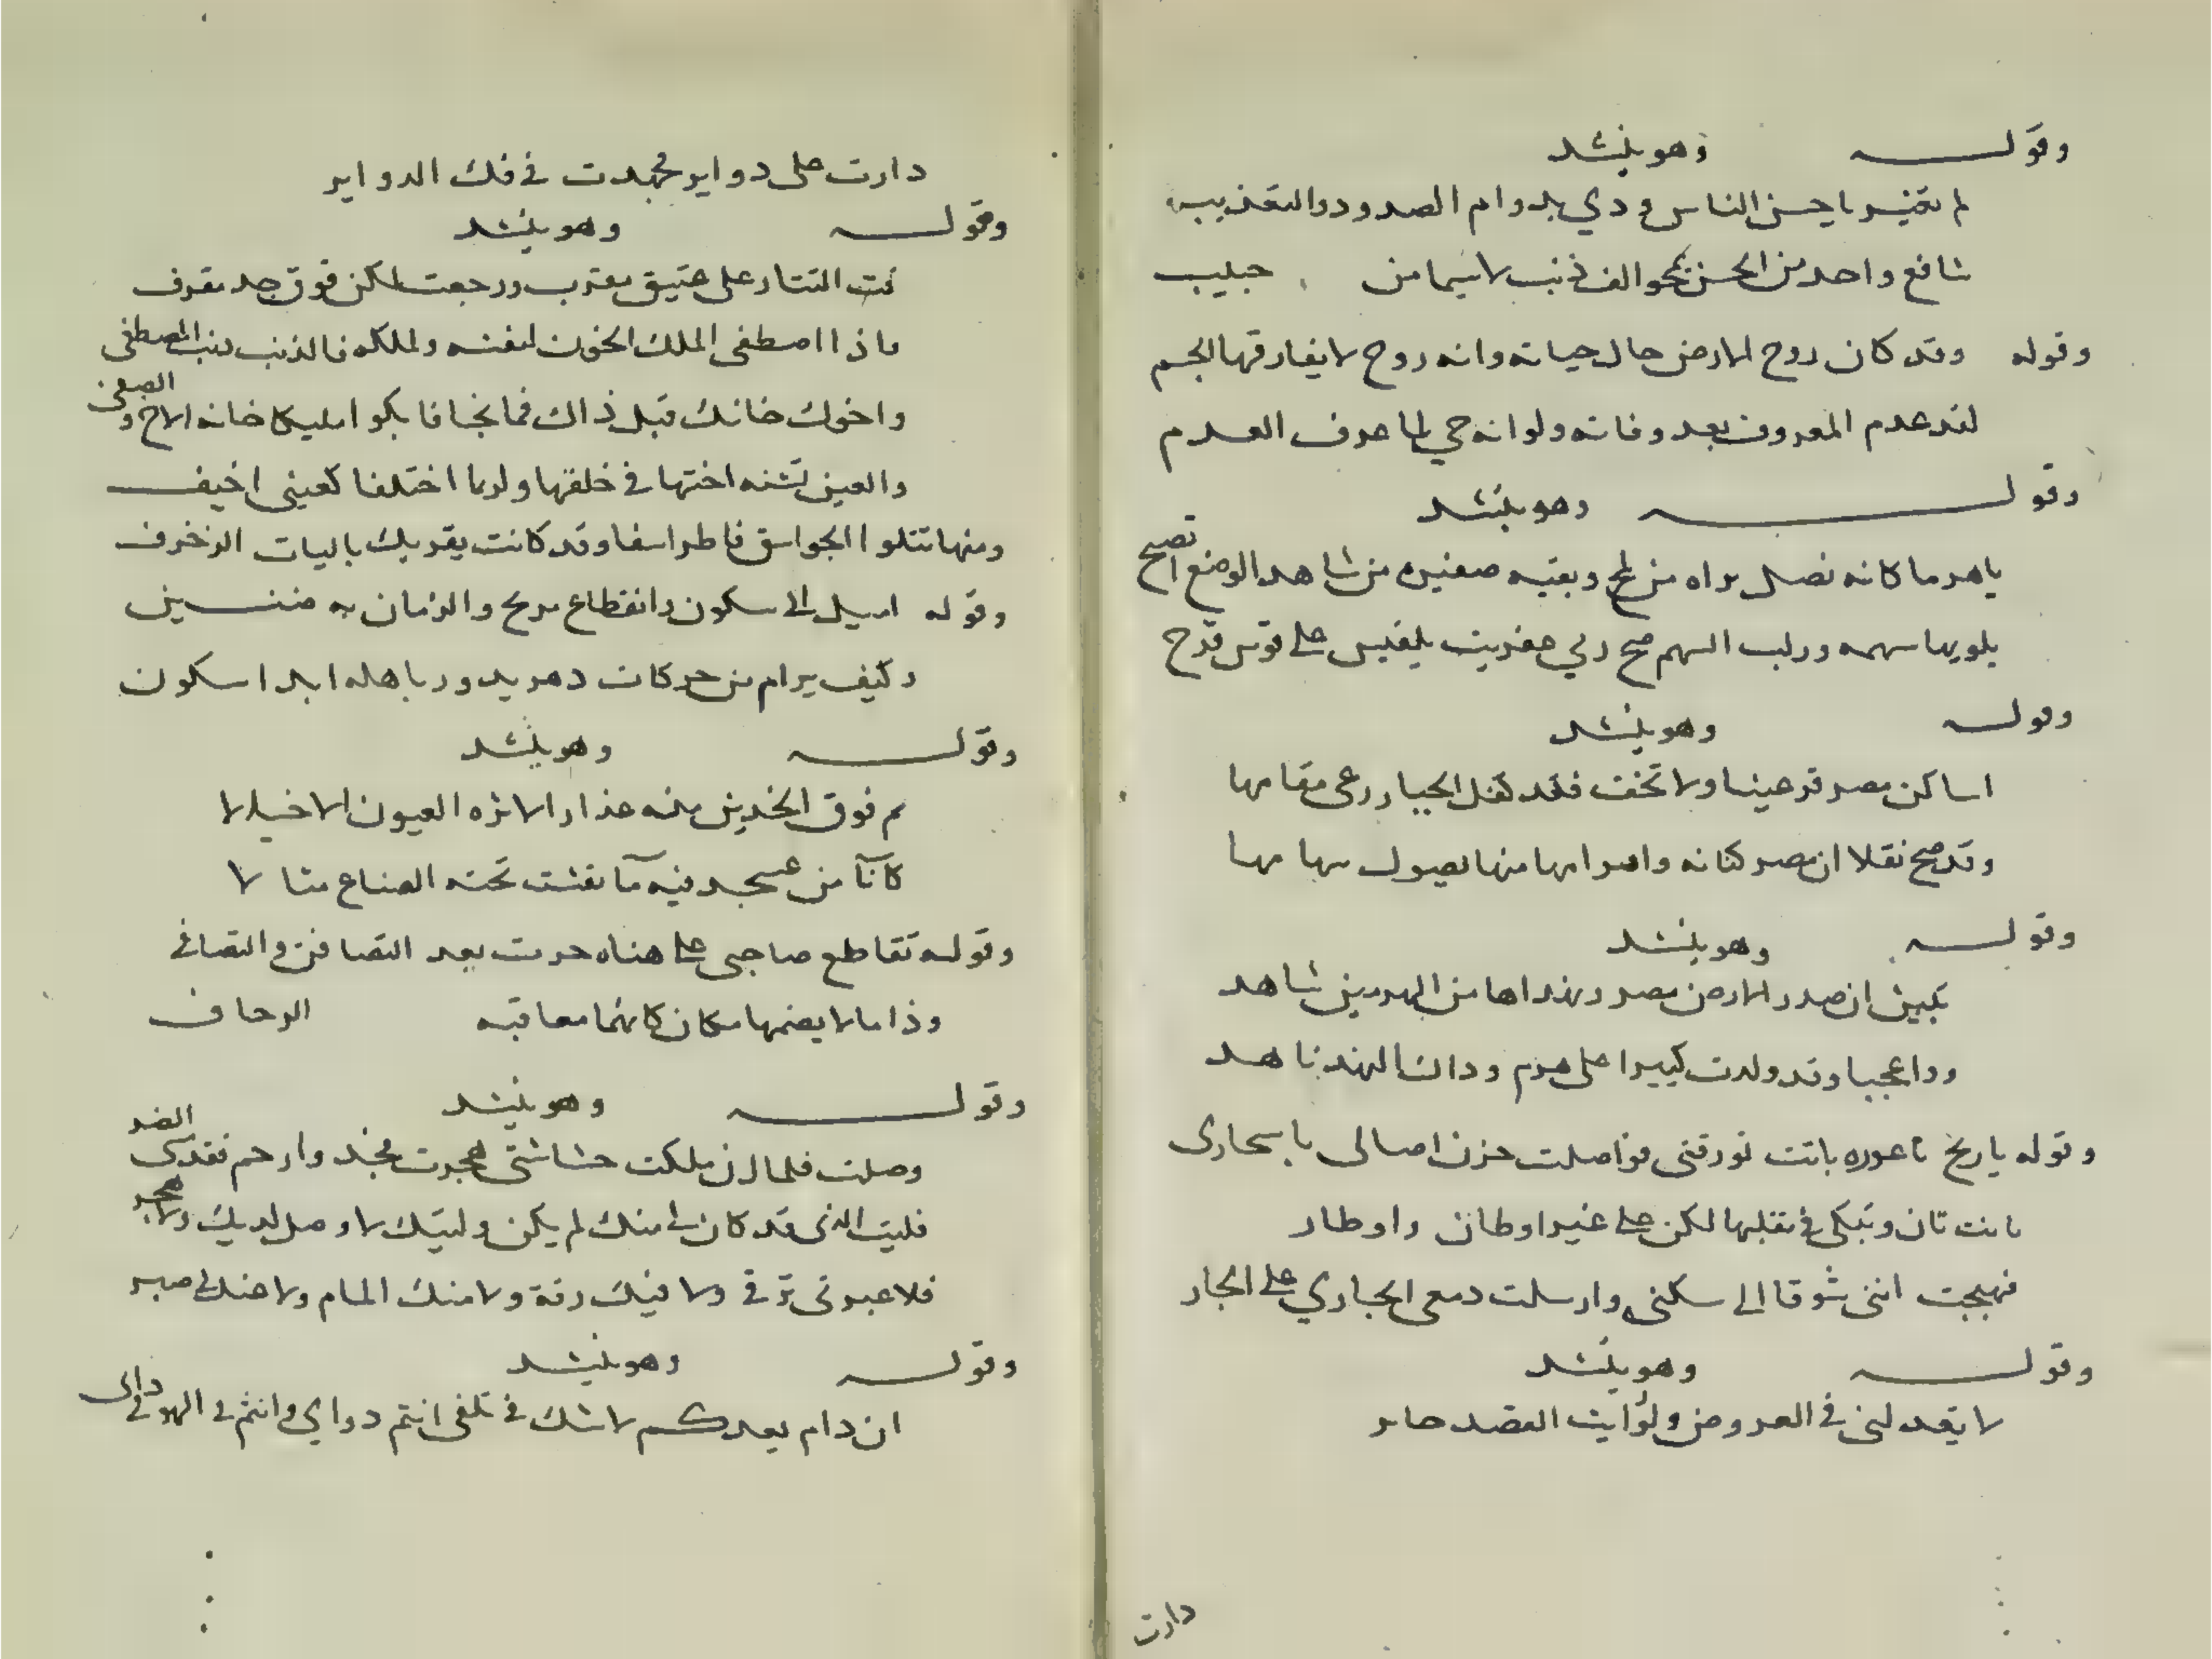 وقوله وهو ينشد
لم تغير يا حسن الناس ودي بدوام الصدود والتعذيب
شافع واحد من الحسن يمحو الف ذنب لا سيما من حبيب
وقوله وقد كان روح الارض حال حياته وانه روح لا يفارقها الجسم
لقد عدم المعروف بعد وفاته ولو انه حي لما عرف العدم
وقوله وهو ينشد
ياهرما كانه نصل براه من وبقيه من شاهد الوضع
سهمه ورلب السهم صح ولي عفريت على قوس قزح
وقوله وهو ينشد
اساكن مصر قر عينا ولا تخف فقد كفل الجبار رعى مقامها
وقد صح نقلا ان مصر كنانه واهرامها منها نصول سهامها
وقوله وهو ينشد
تبين ان صدر الارض مصر ونهداها من الهرمين شاهد
وواعجبا وقد ولدت كبيرا على هرم وذاك النهد ناهد
وقوله يا ريح ناعوره باتت تورقنى فواصلت حزن اصالى باسحارى
باتت تان وتبكى فى تقلبها لكن على غير اوطان واوطار
فهيجت اننى شوقا الى سكنى وارسلت دمعى الجاري على الجار
وقوله وهو ينشد
لا يعد لنى فى العروض ولو رايت القصد حاير
دارت
دارت على دواير فجهدت فى فك الدواير
وقوله وهو ينشد
التتار على عتيق مقرب ورجعت لكن فوق جد مقرف
ماذا اصطفى الملك الخون لنفسه ولملكه فالذنب ذنب المصطفى
واخوك خانك قبل ذاك فما نجا فابكوا مليكا خانه الاخ و الصفى
والعين تشبه اختها فى خلقها ولربما اختلفا كعينى اخيف
ومنها تتلوا الجواسق فاطر اسفا وقد كانت بايات الزخرف
وقوله اميل الى سكون وانقطاع مريح والزمان به ضنين
وكيف يرام من حركات دهر يدور باهله ابدا سكون
وقوله وهو ينشد
لم فوق الخدين منه عذار الا تره العيون الا خيالا
كاتا من عسجد فيه ما نقشت تحته الصناع مثالا
وقوله تقاطع صاحبى على هناه جرت بعد التصافن والتصافى
وذا ما لا يضمهما مكان كانهما معاقبه الزحاف
وقوله وهو ينشد
وصلت فلما ان ملكت حشاشتى هجرت فجد وارحم فقد الضر
فليت الذى قد كان لى منك لم يكن وليتك لا وصل لديك ولا هجر
فلا عبرتى ترقى ولا فيك رقة ولا منك المام ولا عنك لى صبر
وقوله وهو ينشد
ان دام بعدكم لا شك فى تلفى انتم دواي وانتم فى الهوى داى